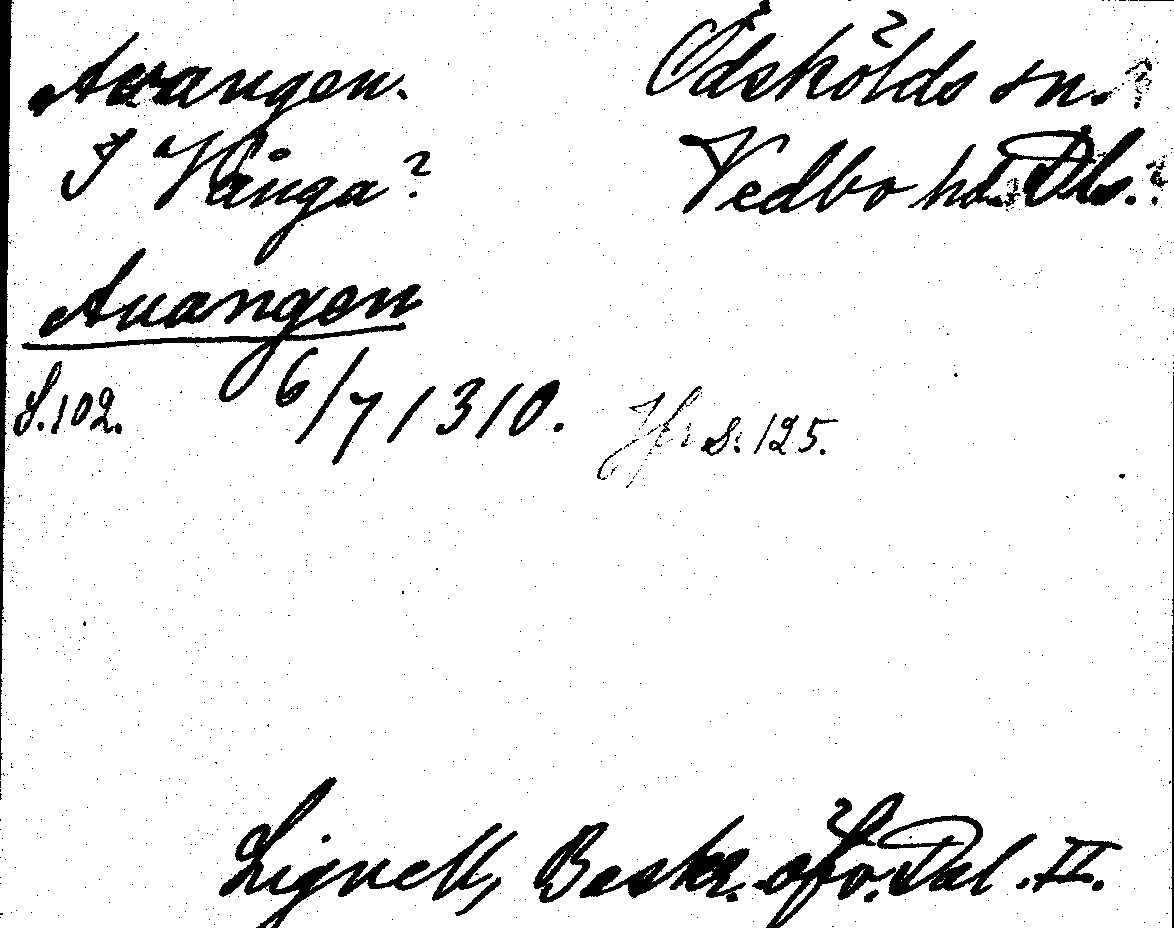 Avangen.
I Vånga?
Ödskölds sn.
Vedbo hd. Dls.
Auangen
S. 102. 6/7 1310. Jfr s. 125.
Lignell, Beskr. öfv. Dal. II.